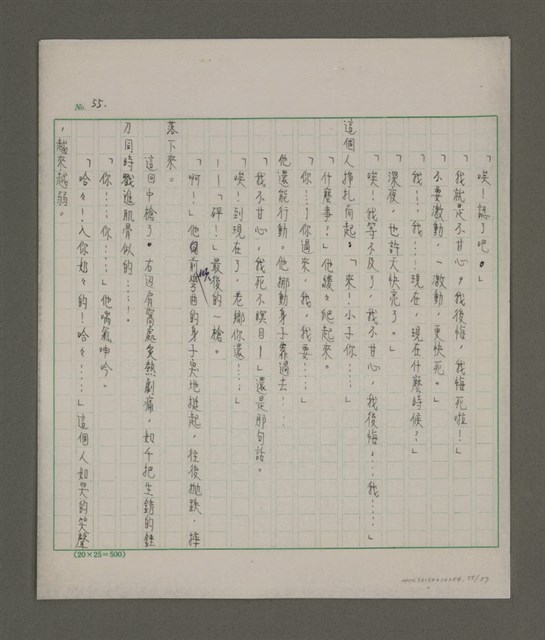 No. 55.
「唉！認了吧。」
「我就是不甘心，我後悔，我悔死啦！」
「不要激動，一激動，更快死。」
「我！我……現在，現在什麼時候？」
「深夜，也許天快亮了。」
「唉！我等不及了，我不甘心，我後悔……我……」
這個人掙扎而起：「來！小子你……」
「什麼事？」他緩々爬起來。
「你……你過來，我，我要……」
他還能行動。他挪動身子靠過去……
「我不甘心，我死不瞑目！」還是那句話。
「唉！到現在了，老鄉你還……」
——「砰！」最後的一槍。
「啊！」他向前彎曲的身子臭地挺起，往後拋跌，摔
落下來。
這回中槍了。右邊肩窩處炙熱劇痛，如千把生銹的銼
刀同時戳進肌骨似的……！
「你……你……」他喘氣呻吟。
「哈々！入你奶々的！哈々……」這個人如哭的笑聲
，越來越弱。
(20×25=500)